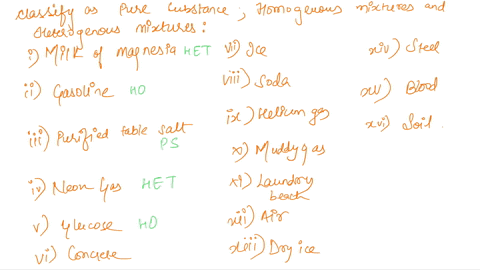 classify as Pure Substance ; Homogenous mixtures and
Heterogenous mixtures :
i) Milk of magnesia HET
ii) Gasoline HO
iii) Purified table salt
PS
iv) Neon Gas HET
v) Glucose HO
vi) Concrete
vii) Ice
viii) Soda
ix) Helium gas
x) Muddy gas
xi) Laundry
beach
xii) Air
xiii) Dry ice
xiv) Steel
xv) Blood
xvi) Soil